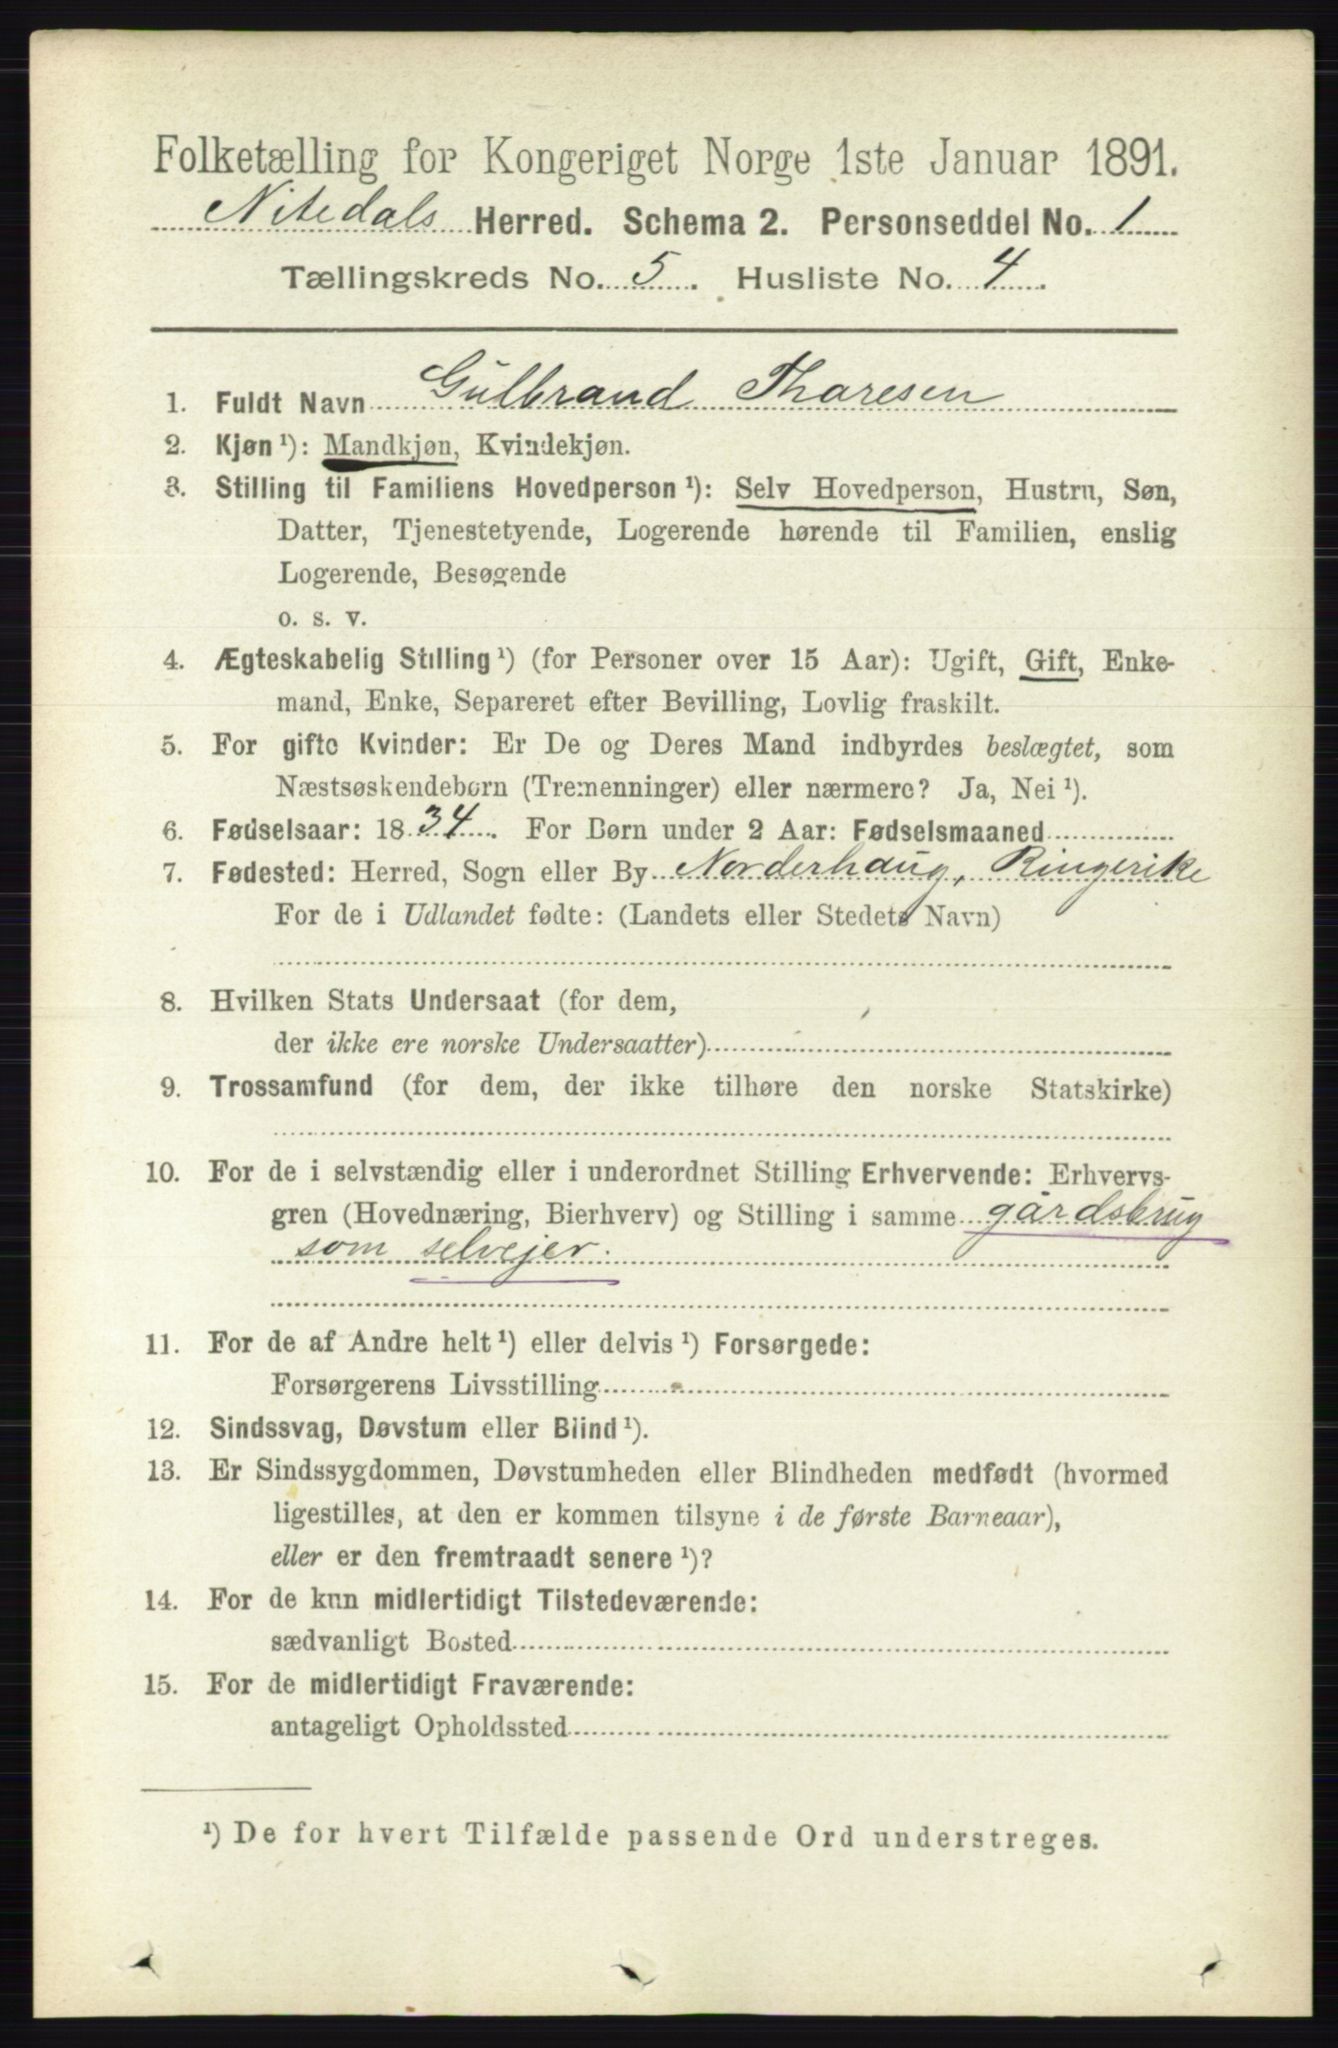 Folketælling for Kongeriget Norge 1ste Januar 1891.
Nitedals Herred. Schema 2. Personseddel No. 1
Tællingskreds No. 5. Husliste No. 4.
1. Fuldt Navn Gulbrand Thoresen
2. Kjøn ¹): Mandkjøn, Kvindekjøn.
3. Stilling til Familiens Hovedperson ¹): Selv Hovedperson, Hustru, Søn,
Datter, Tjenestetyende, Logerende hørende til Familien, enslig
Logerende, Besøgende
o. s. v.
4. Ægteskabelig Stilling ¹) (for Personer over 15 Aar): Ugift, Gift, Enke-
mand, Enke, Separeret efter Bevilling, Lovlig fraskilt.
5. For gifte Kvinder: Er De og Deres Mand indbyrdes beslægtet, som
Næstsøskendebørn (Tremenninger) eller nærmere? Ja, Nei ¹).
6. Fødselsaar: 1834. For Børn under 2 Aar: Fødselsmaaned
7. Fødested: Herred, Sogn eller By Norderhaug, Ringerike
For de i Udlandet fødte: (Landets eller Stedets Navn)
8. Hvilken Stats Undersaat (for dem,
der ikke ere norske Undersaatter)
9. Trossamfund (for dem, der ikke tilhøre den norske Statskirke)
10. For de i selvstændig eller i underordnet Stilling Erhvervende: Erhvervs-
gren (Hovednæring, Bierhverv) og Stilling i samme gårdsbrug
som selvejer.
11. For de af Andre helt ¹) eller delvis ¹) Forsørgede:
Forsørgerens Livsstilling
12. Sindssvag, Døvstum eller Blind ¹).
13. Er Sindssygdommen, Døvstumheden eller Blindheden medfødt (hvormed
ligestilles, at den er kommen tilsyne i de første Barneaar),
eller er den fremtraadt senere ¹)?
14. For de kun midlertidigt Tilstedeværende:
sædvanligt Bosted
15. For de midlertidigt Fraværende:
antageligt Opholdssted
¹) De for hvert Tilfælde passende Ord understreges.